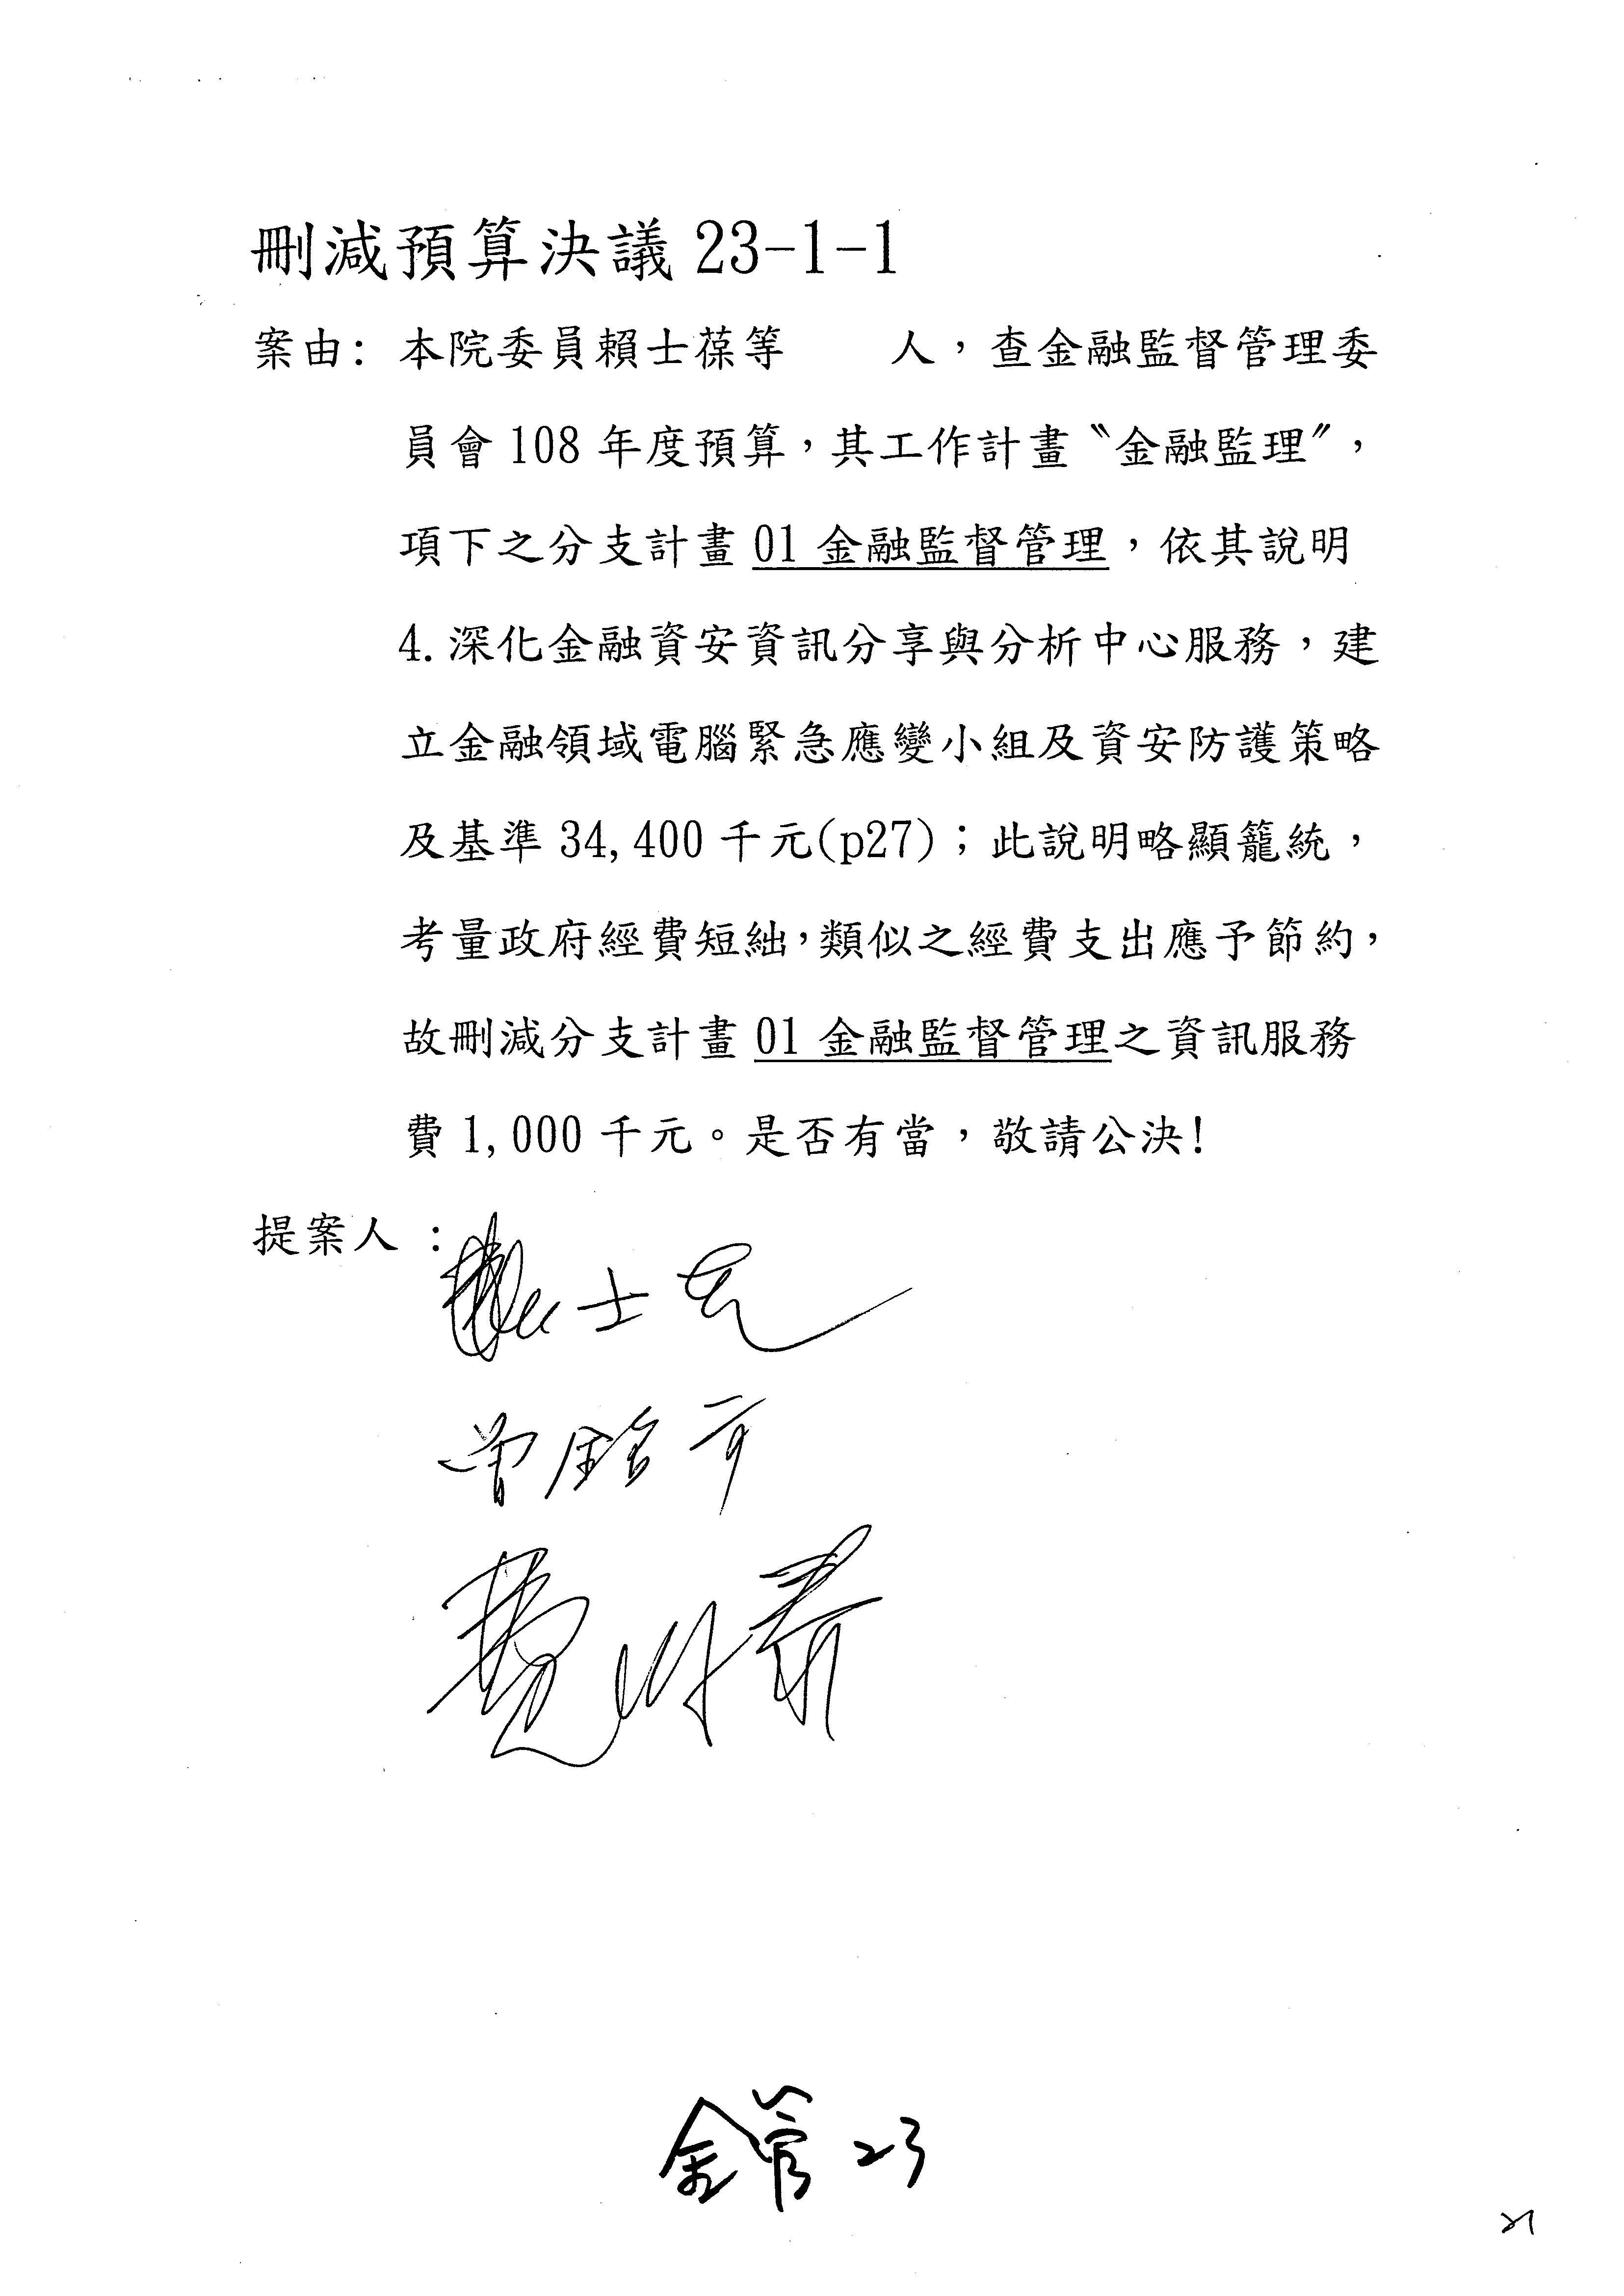 刪減預算決議 23-1-1
案由: 本院委員賴士葆等　　人，查金融監督管理委
員會 108 年度預算，其工作計畫〝金融監理〞，
項下之分支計畫 01 金融監督管理，依其說明
4. 深化金融資安資訊分享與分析中心服務，建
立金融領域電腦緊急應變小組及資安防護策略
及基準 34,400 千元(p27)；此說明略顯籠統，
考量政府經費短絀，類似之經費支出應予節約，
故刪減分支計畫 01 金融監督管理之資訊服務
費 1,000 千元。是否有當，敬請公決!
提案人：
金管 23